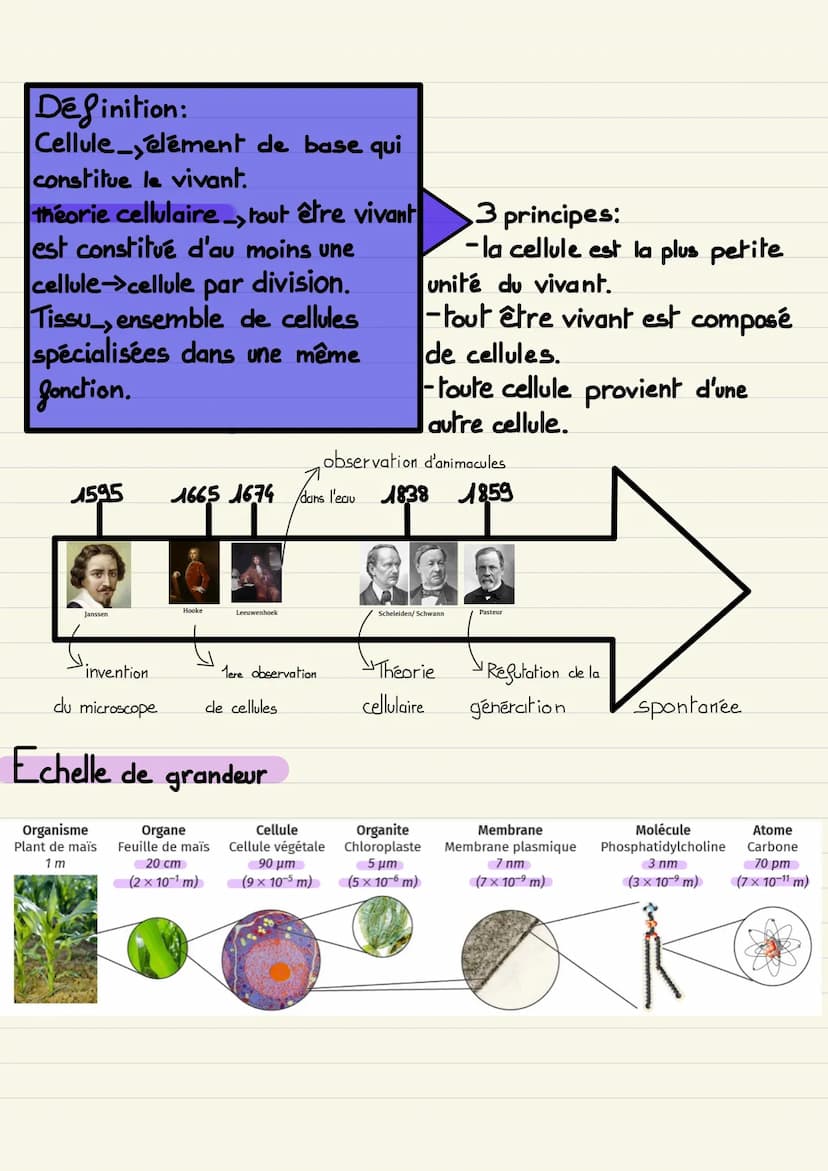 Définition:
Cellule_→élément de base qui
constitue le vivant.
théorie cellulaire_→tout être vivant
est constitué d'au moins une
cellule→cellule par division.
Tissu_→ensemble de cellules
spécialisées dans une même
fonction.
3 principes:
-la cellule est la plus petite
unité du vivant.
-tout être vivant est composé
de cellules.
-toute cellule provient d'une
autre cellule.
observation d'animacules
dans l'eau
1595
1665
1674
1838
1859
Janssen
Hooke
Leeuwenhoek
Scheleiden/ Schwann
Pasteur
invention
du microscope
1ere observation
de cellules
Théorie
cellulaire
Réfutation de la
génération spontanée
Echelle de grandeur
Organisme
Plant de maïs
1 m
Organe
Feuille de maïs
20 cm
(2 × 10⁻¹ m)
Cellule
Cellule végétale
90 µm
(9 × 10⁻⁵ m)
Organite
Chloroplaste
5 µm
(5 × 10⁻⁶ m)
Membrane
Membrane plasmique
7 nm
(7 × 10⁻⁹ m)
Molécule
Phosphatidylcholine
3 nm
(3 × 10⁻⁹ m)
Atome
Carbone
70 pm
(7 × 10⁻¹¹ m)